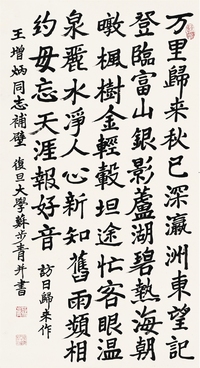 万里歸来秋已深瀛洲東望記
登臨富山銀影蘆湖碧熱海朝
暾楓樹金輕轂坦途忙客眼溫
泉麗水淨人心新知舊雨頻相
約毋忘天涯報好音 訪日歸来作
王增炳同志補壁 復旦大學蘇步青并書